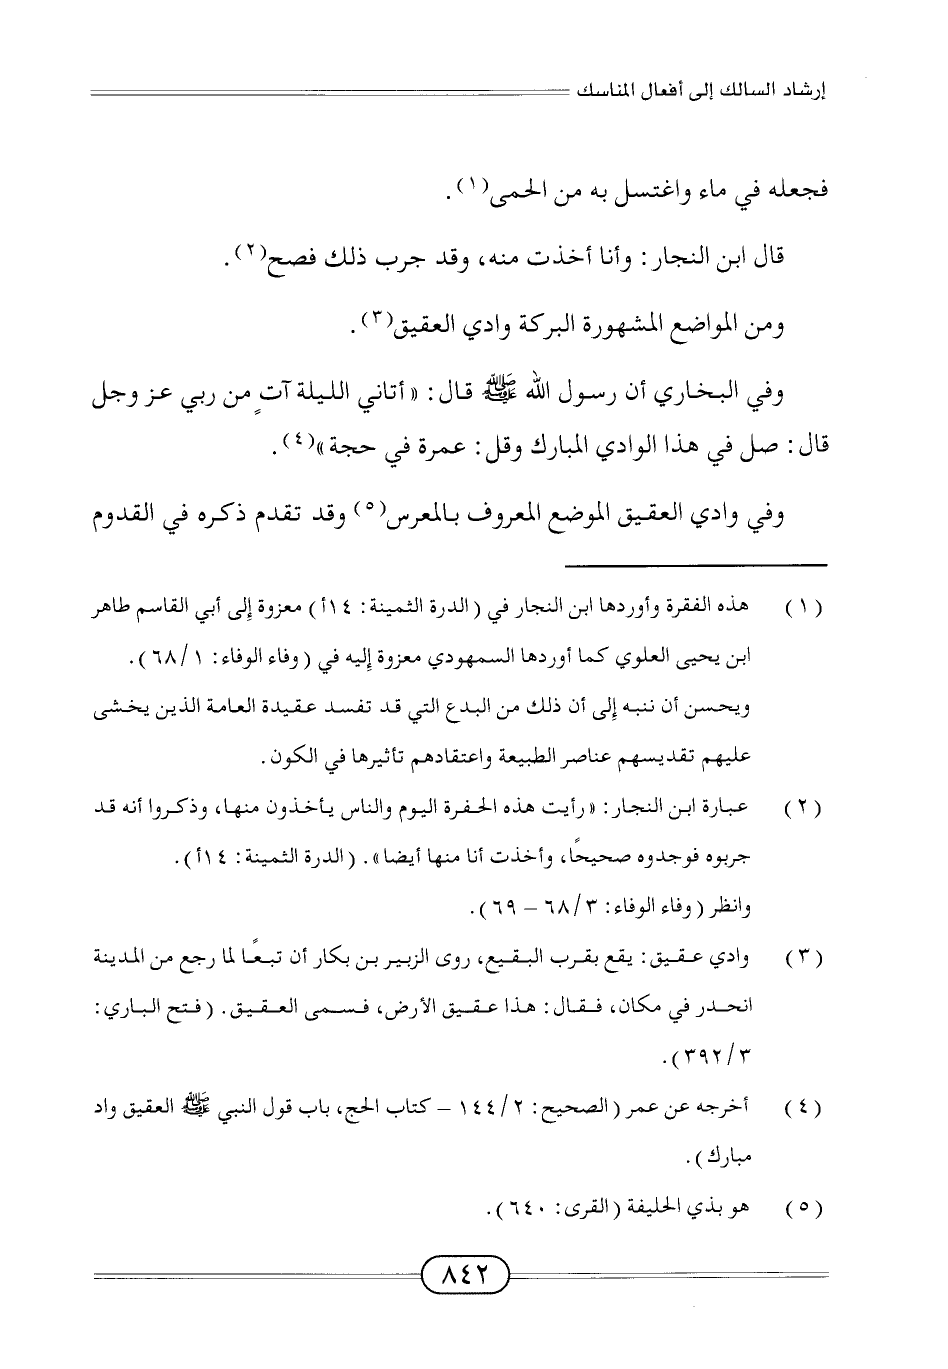 إرشاد السالك إلى أفعال المناسك
فجعله في ماء واغتسل به من الحمى(١).
قال ابن النجار: وأنا أخذت منه، وقد جرب ذلك فصح(٢).
ومن المواضع المشهورة البركة وادي العقيق(٣).
وفي البخاري أن رسول الله ﷺ قال: «أتاني الليلة آتٍ من ربي عز وجل
قال: صل في هذا الوادي المبارك وقل: عمرة في حجة»(٤).
وفي وادي العقيق الموضع المعروف بالمعرس(٥) وقد تقدم ذكره في القدوم
(١) هذه الفقرة وأوردها ابن النجار في (الدرة الثمينة: ١٤أ) معزوة إلى أبي القاسم طاهر
ابن يحيى العلوي كما أوردها السمهودي معزوة إليه في (وفاء الوفاء: ٦٨/١).
ويحسن أن ننبه إلى أن ذلك من البدع التي قد تفسد عقيدة العامة الذين يخشى
عليهم تقديسهم عناصر الطبيعة واعتقادهم تأثيرها في الكون.
(٢) عبارة ابن النجار: «رأيت هذه الحفرة اليوم والناس يأخذون منها، وذكروا أنه قد
جربوه فوجدوه صحيحًا، وأخذت أنا منها أيضا». (الدرة الثمينة: ١٤أ).
وانظر (وفاء الوفاء: ٦٨/٣ – ٦٩).
(٣) وادي عقيق: يقع بقرب البقيع، روى الزبير بن بكار أن تبعًا لما رجع من المدينة
انحدر في مكان، فقال: هذا عقيق الأرض، فسمى العقيق. (فتح الباري:
٣٩٢/٣).
(٤) أخرجه عن عمر (الصحيح: ١٤٤/٢ – كتاب الحج، باب قول النبي ﷺ العقيق واد
مبارك).
(٥) هو بذي الحليفة (القرى: ٦٤٠).
٨٤٢